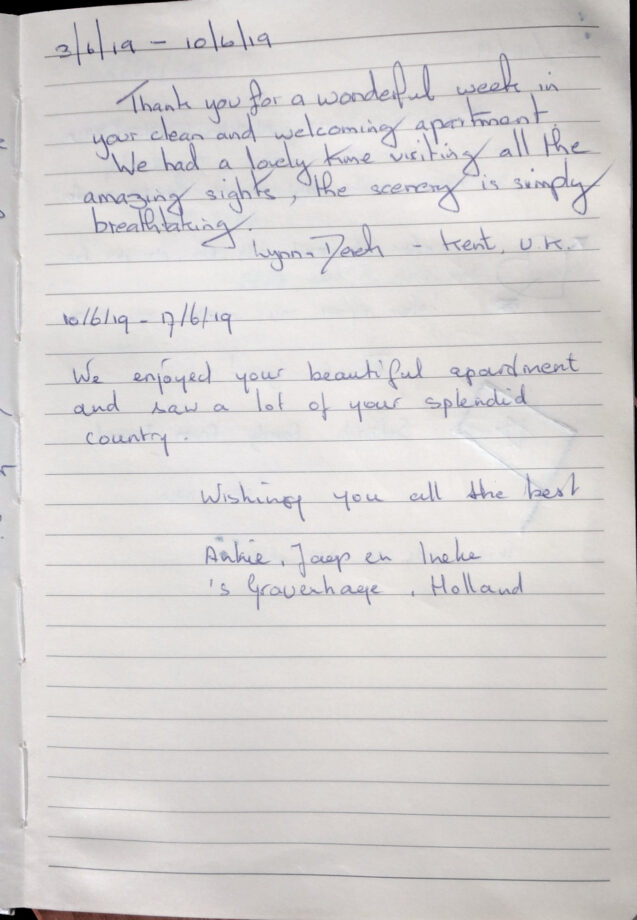 3/6/19 - 10/6/19
Thank you for a wonderful week in
your clean and welcoming apartment.
We had a lovely time visiting all the
amazing sights, the scenery is simply
breathtaking.
Lynn - Kent, U.K.
10/6/19 - 17/6/19
We enjoyed your beautiful apardment
and saw a lot of your splendid
country.
Wishing you all the best
Ankie, Jaap en Ineke
's Gravenhage, Holland